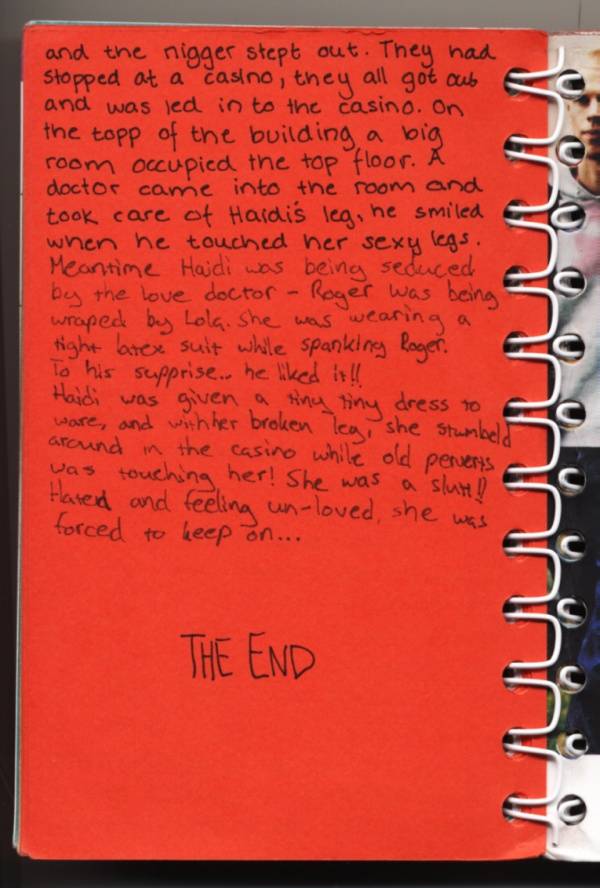 and the nigger stept out. They had
stopped at a casino, they all got out
and was led in to the casino. On
the topp of the building a big
room occupied the top floor. A
doctor came into the room and
took care of Haidi's leg, he smiled
when he touched her sexy legs.
Meantime Haidi was being seduced
by the love doctor - Roger was being
wraped by Lola. She was wearing a
tight latex suit while spanking Roger.
To his supprise... he liked it!!
Haidi was given a tiny tiny dress to
ware, and with her broken leg, she stumbeld
around in the casino while old perverts
was touching her! She was a slut!!
Hated and feeling un-loved, she was
forced to keep on...
THE END